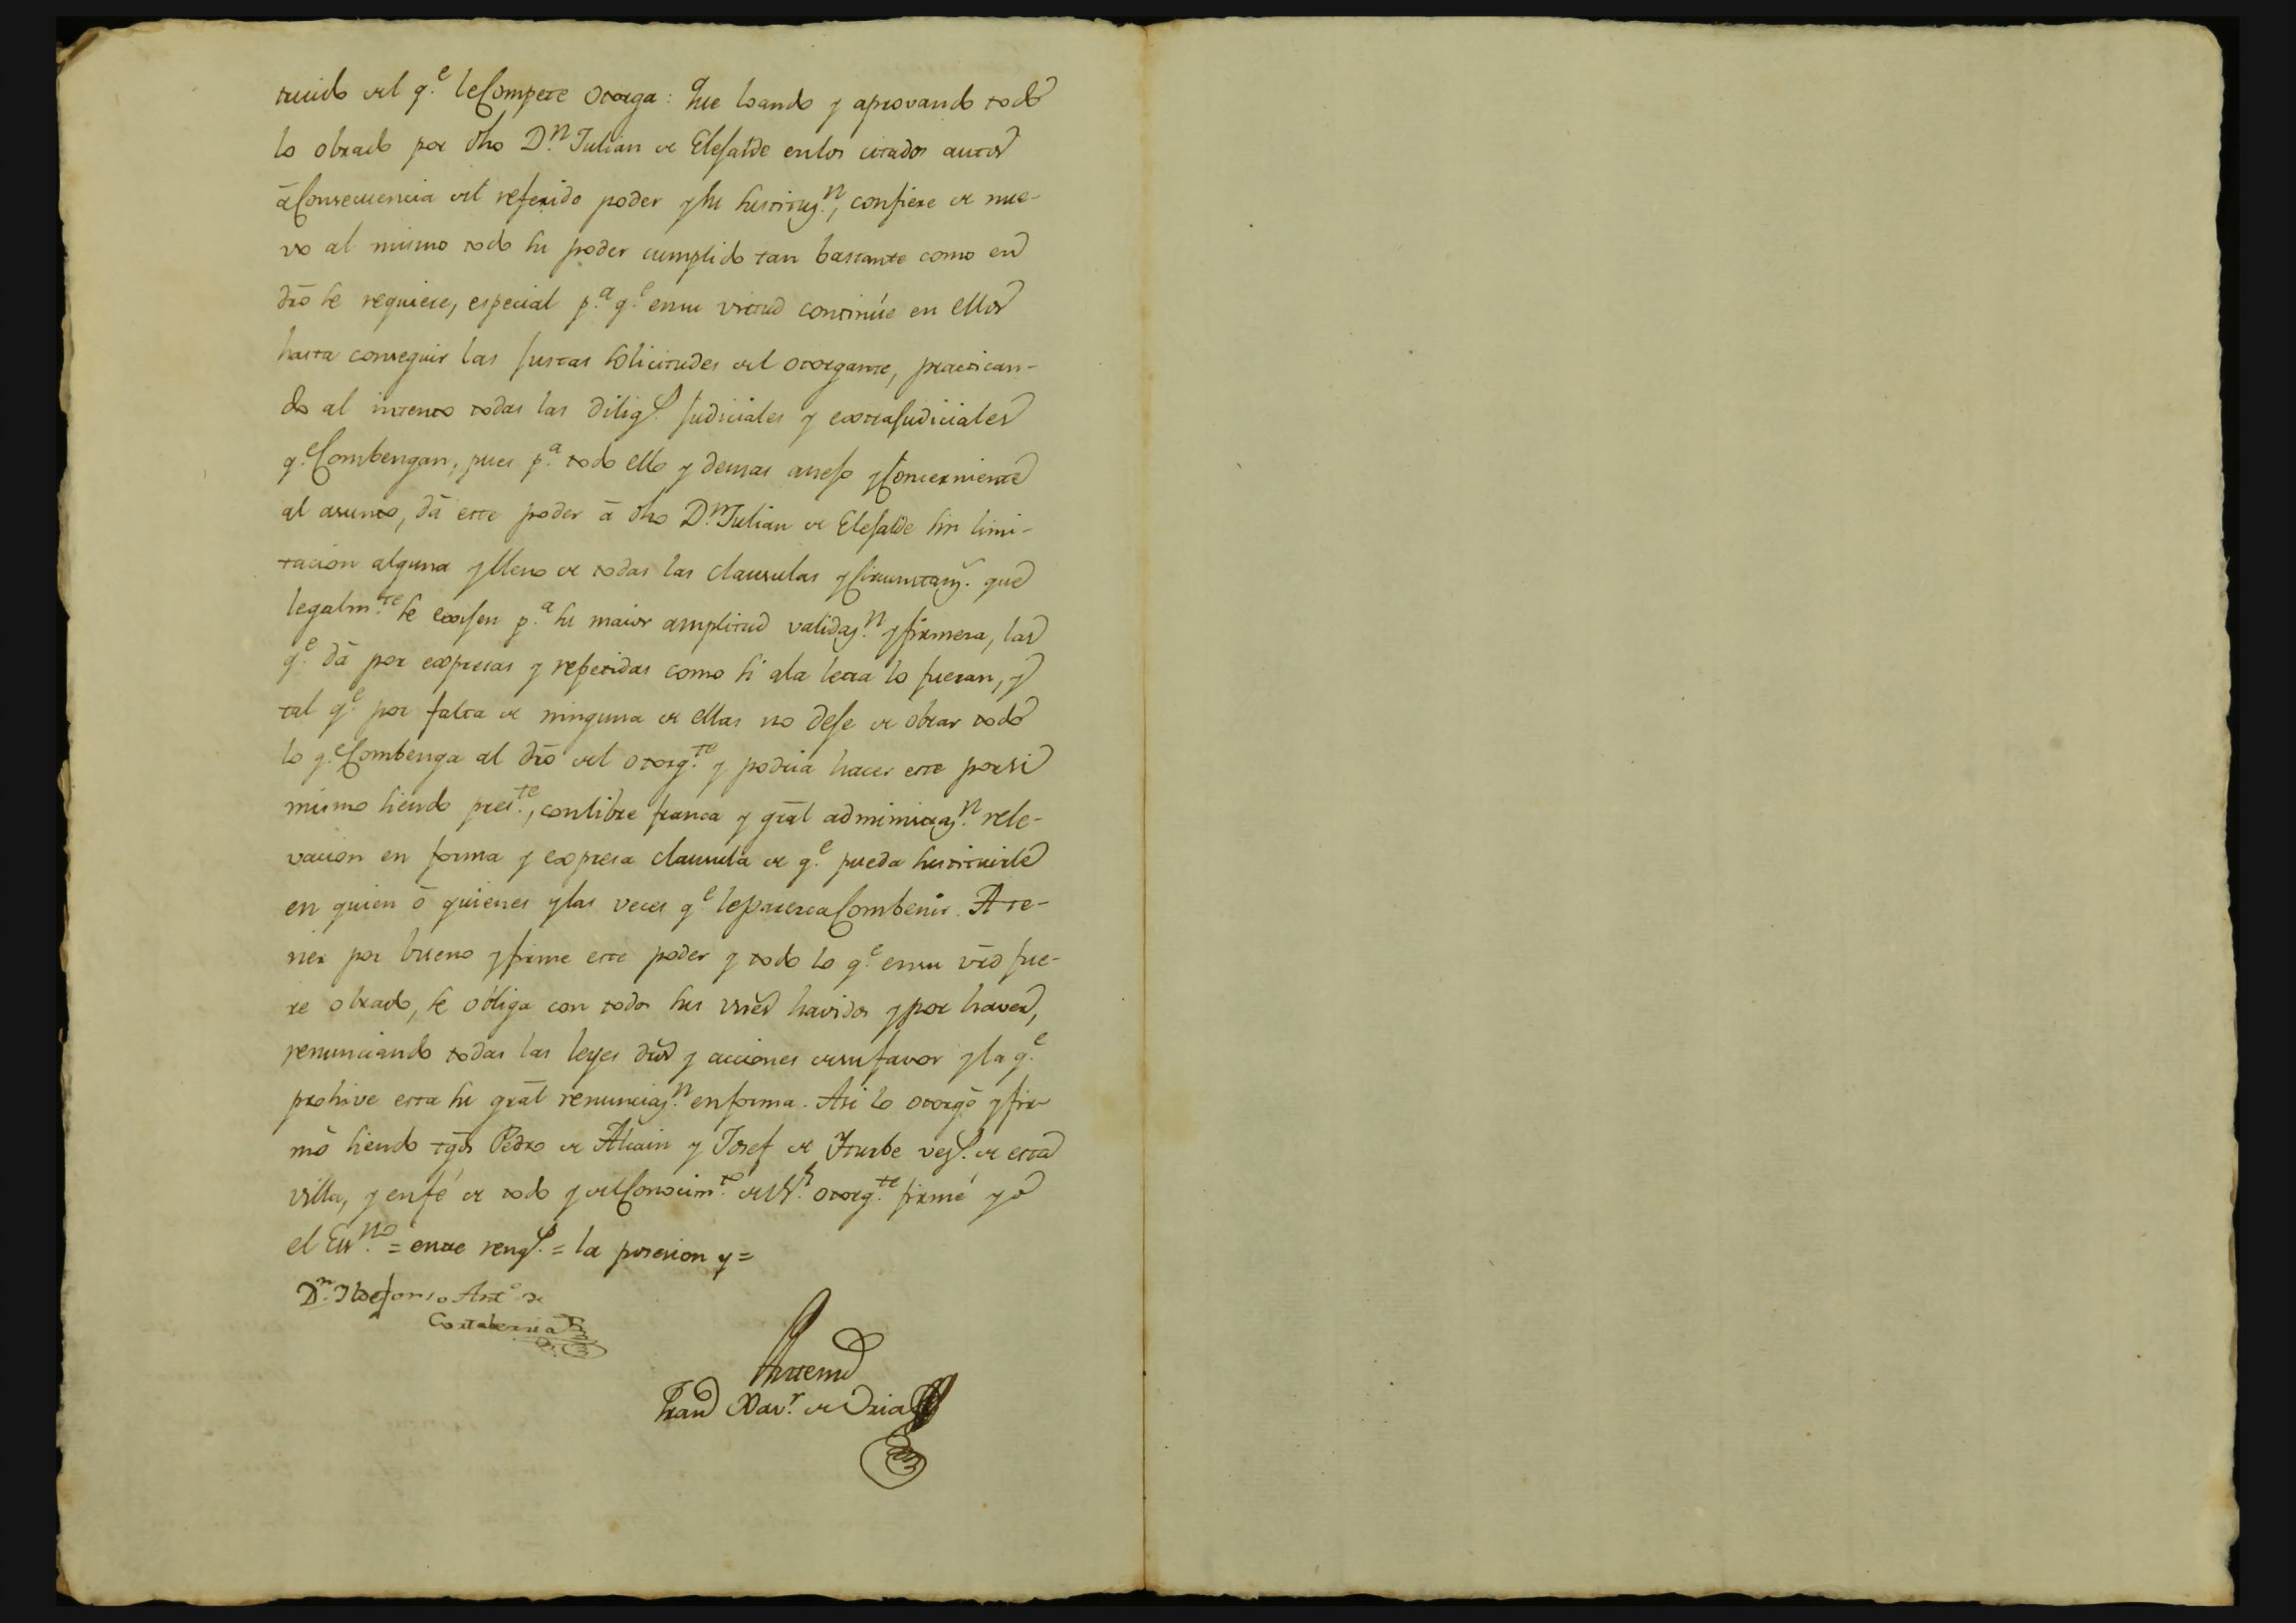 truido del q.e le Compete otorga: Que loando y aprovando todo
lo obrado por dho D.n Julian de Elejalde en los citados autos
à Consecuencia del referido poder y su sustituz.n, confiere de nue-
vo al mismo todo su poder cumplido tan bastante como en
dro se requiere, especial p.a q.e en su virtud continúe en ellos
hasta conseguir las justas solicitudes del otorgante, practican-
do al intento todas las dilig.s judiciales y extrajudiciales
q.e Combengan, pues p.a todo ello y demas anejo y Concerniente
al asunto, dà este poder à dho D.n Julian de Elejalde sin limi-
tacion alguna y lleno de todas las clausulas y Circunstanz.s que
legalm.te se exijen p.a su maior amplitud validaz.n y firmeza, las
q.e dà por expresas y repetidas como si ala letra lo fueran, y
tal q.e por falta de ninguna de ellas no deje de obrar todo
lo q.e Combenga al dro del otorg.te y podria hacer este por si
mismo siendo pres.te, con libre franca y gral administraz.n rele-
vacion en forma y expresa clausula de q.e pueda sustituirle
en quien ò quienes y las veces q.e le parezca Combenir. A te-
ner por bueno y firme este poder y todo lo q.e en su vrd fue-
re obrado, se obliga con todos sus vnes havidos y por haver,
renunciando todas las leyes dros y acciones de su favor y la q.e
prohive esta su gral renunciaz.n en forma. Asi lo otorgò y fir-
mò siendo tgos Pedro de Alcain y Josef de Yturbe vez.s de esta
villa, y en fé de todo y del Conocim.to del S.r otorg.te firmé yo
el Ess.no = entre reng.s = la posesion y =
D.n Ildefonso Ant.o de
Cortaberria
Antemi
Fran.co Xav.r de Oria